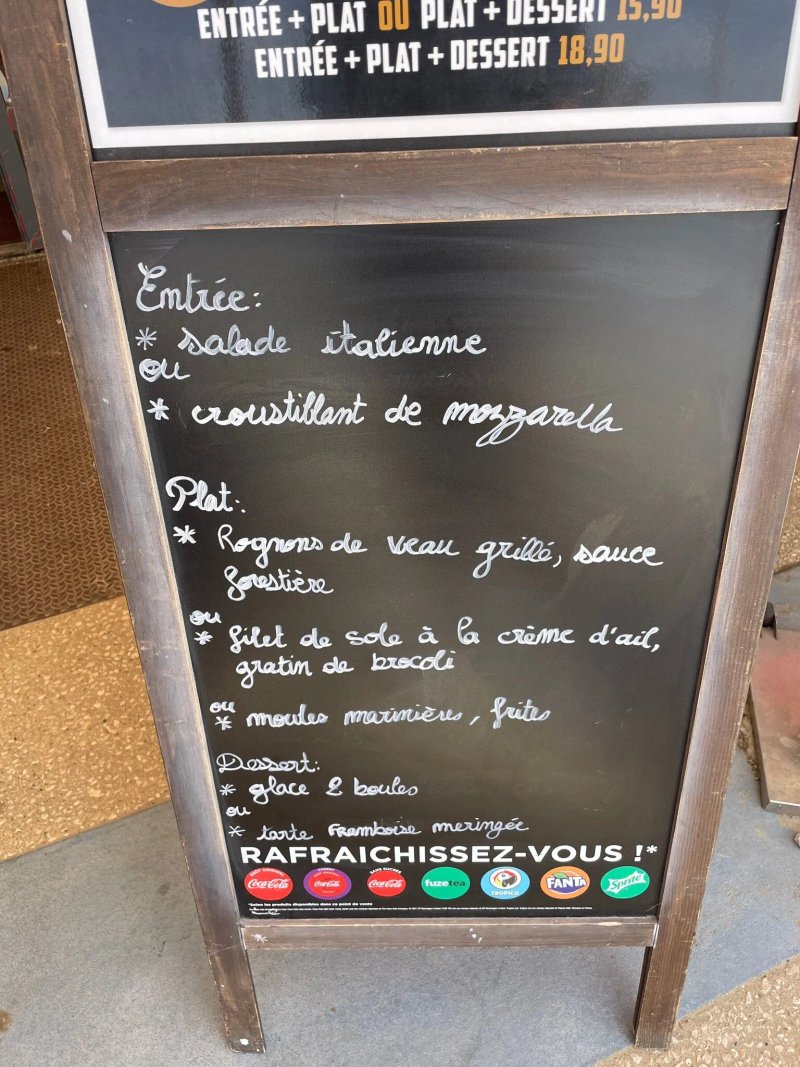 ENTRÉE + PLAT OU PLAT + DESSERT 15,90
ENTRÉE + PLAT + DESSERT 18,90
Entrée:
* salade italienne
ou
* croustillant de mozzarella
Plat:
* Rognons de veau grillé, sauce
forestière
ou
* filet de sole à la crème d'ail,
gratin de brocoli
ou
* moules marinières, frites
Dessert:
* glace 2 boules
ou
* tarte Framboise meringée
RAFRAICHISSEZ-VOUS !*
GOÛT ORIGINAL CHERRY SANS SUCRES
Coca-Cola Coca-Cola Coca-Cola fuzetea TROPICO FANTA Sprite
*Selon les produits disponibles dans ce point de vente